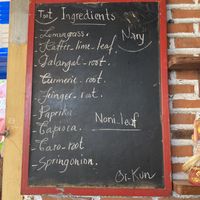 Tont Ingredients
Lemongrass. Nany
Kaffer_lime_leaf
Galangal_root.
Turmeric_root.
Jinger_root.
Paprika
Tapioca. Noni_leaf
Taro-root
Springonion.
Or_Kun